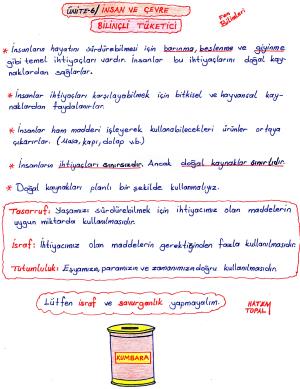 ÜNİTE-6/ İNSAN VE ÇEVRE
Fen Bilimleri
BİLİNÇLİ TÜKETİCİ
* İnsanların hayatını sürdürebilmesi için barınma, beslenme ve giyinme
gibi temel ihtiyaçları vardır. İnsanlar bu ihtiyaçlarını doğal kay-
naklardan sağlarlar.
* İnsanlar ihtiyaçları karşılayabilmek için bitkisel ve hayvansal kay-
naklardan faydalanırlar.
* İnsanlar ham madderi işleyerek kullanabilecekleri ürünler ortaya
çıkarırlar. (Masa, kapı, dolap v.b.)
* İnsanların ihtiyaçları sınırsızdır. Ancak doğal kaynaklar sınırlıdır.
* Doğal kaynakları planlı bir şekilde kullanmalıyız.
Tasarruf: Yaşamımızı sürdürebilmek için ihtiyacımız olan maddelerin
uygun miktarda kullanılmasıdır.
İsraf: İhtiyacımız olan maddelerin gerektiğinden fazla kullanılmasıdır.
Tutumluluk: Eşyamızın, paramızın ve zamanımızın doğru kullanılmasıdır.
Lütfen israf ve savurganlık yapmayalım.
HATEM
TOPAL
KUMBARA